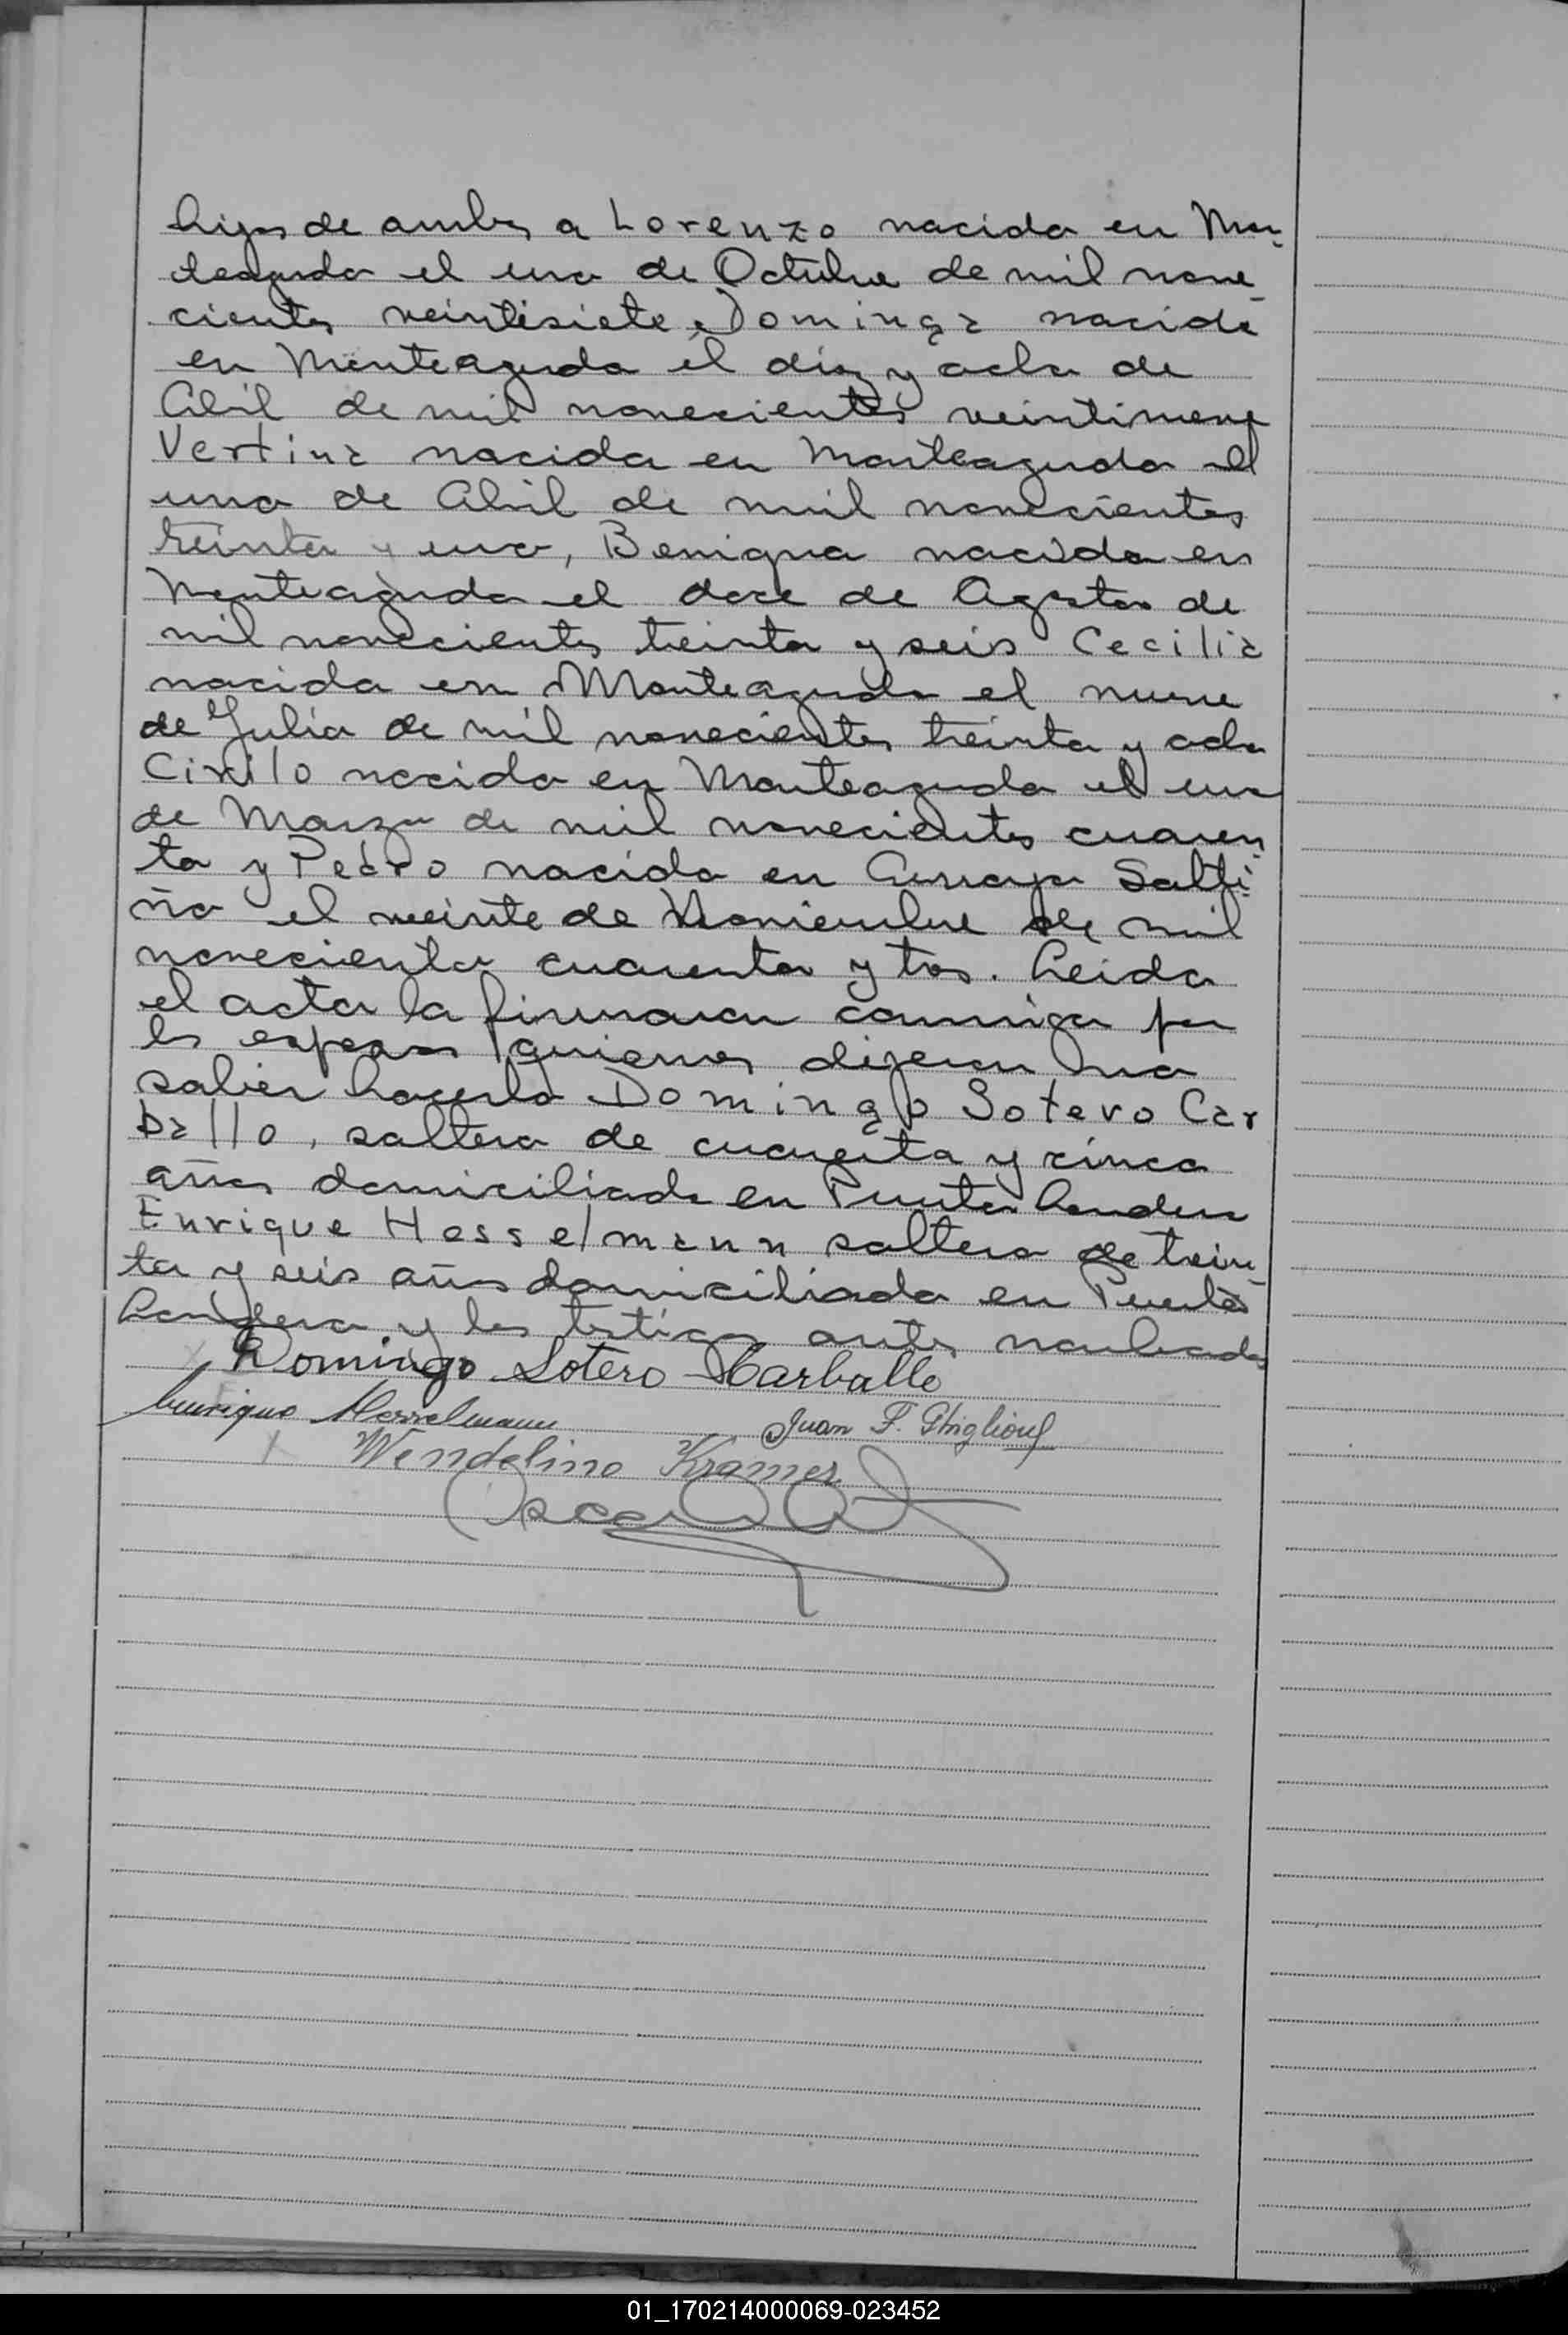 hijos de ambos a Lorenzo nacido en Mon-
teagudo el uno de Octubre de mil nove-
cientos veintisiete, Dominga nacida
en Monteagudo el diez y ocho de
Abril de mil novecientos veintinueve
Vertina nacida en Monteagudo el
uno de Abril de mil novecientos
treinta y uno, Benigna nacida en
Monteagudo el doce de Agosto de
mil novecientos treinta y seis Cecilia
nacida en Monteagudo el nueve
de Julio de mil novecientos treinta y ocho
Cirilo nacido en Monteagudo el uno
de Marzo de mil novecientos cuaren-
ta y Pedro nacido en Arroyo Salti-
ño el veinte de Noviembre de mil
novecientos cuarenta y tres. Leida
el acta la firmaron conmigo por
los esposos quienes dijeron no
saber hacerlo Domingo Sotero Car
ballo, soltero de cuarenta y cinco
años domiciliado en Puerto Londero
Enrique Hesselmann soltero de trein-
ta y seis años domiciliado en Puerto
Londero y los testigos antes nombrados
Domingo Sotero Carballo
Enrique Hesselmann Juan F. Ghiglione
Wendelino Kramer
01_170214000069-023452